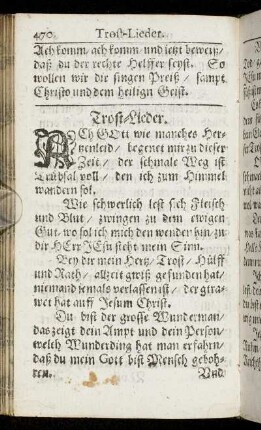 470 Trost-Lieder.
Ach komm, ach komm und jetzt beweiß/
daß du der rechte Helffer seyst. So
wollen wir dir singen Preiß/ sampt
Christo und dem heilign Geist.
Trost-Lieder.
ACh GOtt wie manches Her-
tzenleid/ begenet mir zu dieser
Zeit/ der schmale Weg ist
Trübsal voll/ den ich zum Himmel
wandern sol.
Wie schwerlich lest sich Fleisch
und Blut/ zwingen zu dem ewigen
Gut, wo sol ich mich den wenden hin/ zu
dir HErr JEsu steht mein Sinn.
Bey dir mein Hertz/ Trost/ Hülff
und Rath/ allzeit gwiß gefunden hat/
niemand jemals verlassen ist/ der gtra-
wet hat auff Jesum Christ.
Du bist der grosse Wunderman/
das zeigt dein Ampt und dein Person/
welch Wunderding hat man erfahrn/
daß du mein Gott bist Mensch geboh-
ren. Und